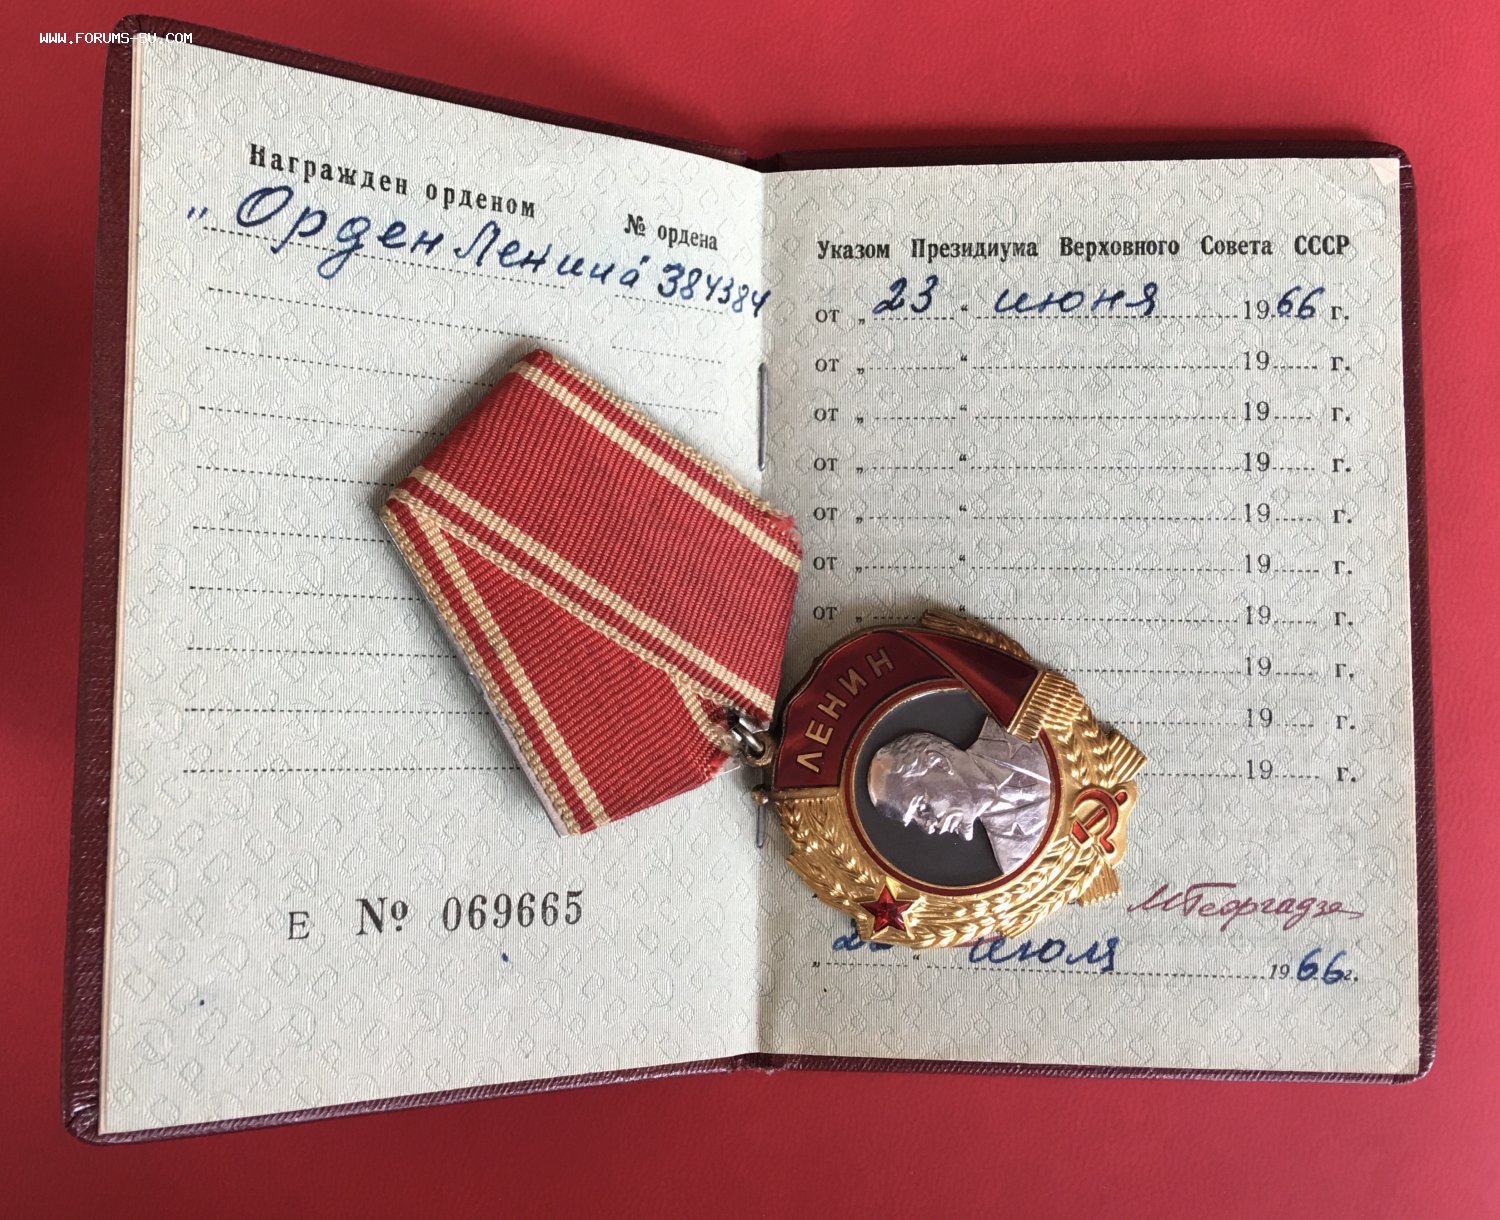 WWW.FORUMS-SU.COM
Награжден орденом № ордена
„Орден Ленина" 384384
Е № 069665
Указом Президиума Верховного Совета СССР
от „ 23 “ июня 1966 г.
от „ “ 19 г.
от „ “ 19 г.
от „ “ 19 г.
от „ “ 19 г.
от „ “ 19 г.
от „ “ 19 г.
19 г.
19 г.
19 г.
ЛЕНИН
МГеоргадзе
„ “ июля 1966 г.